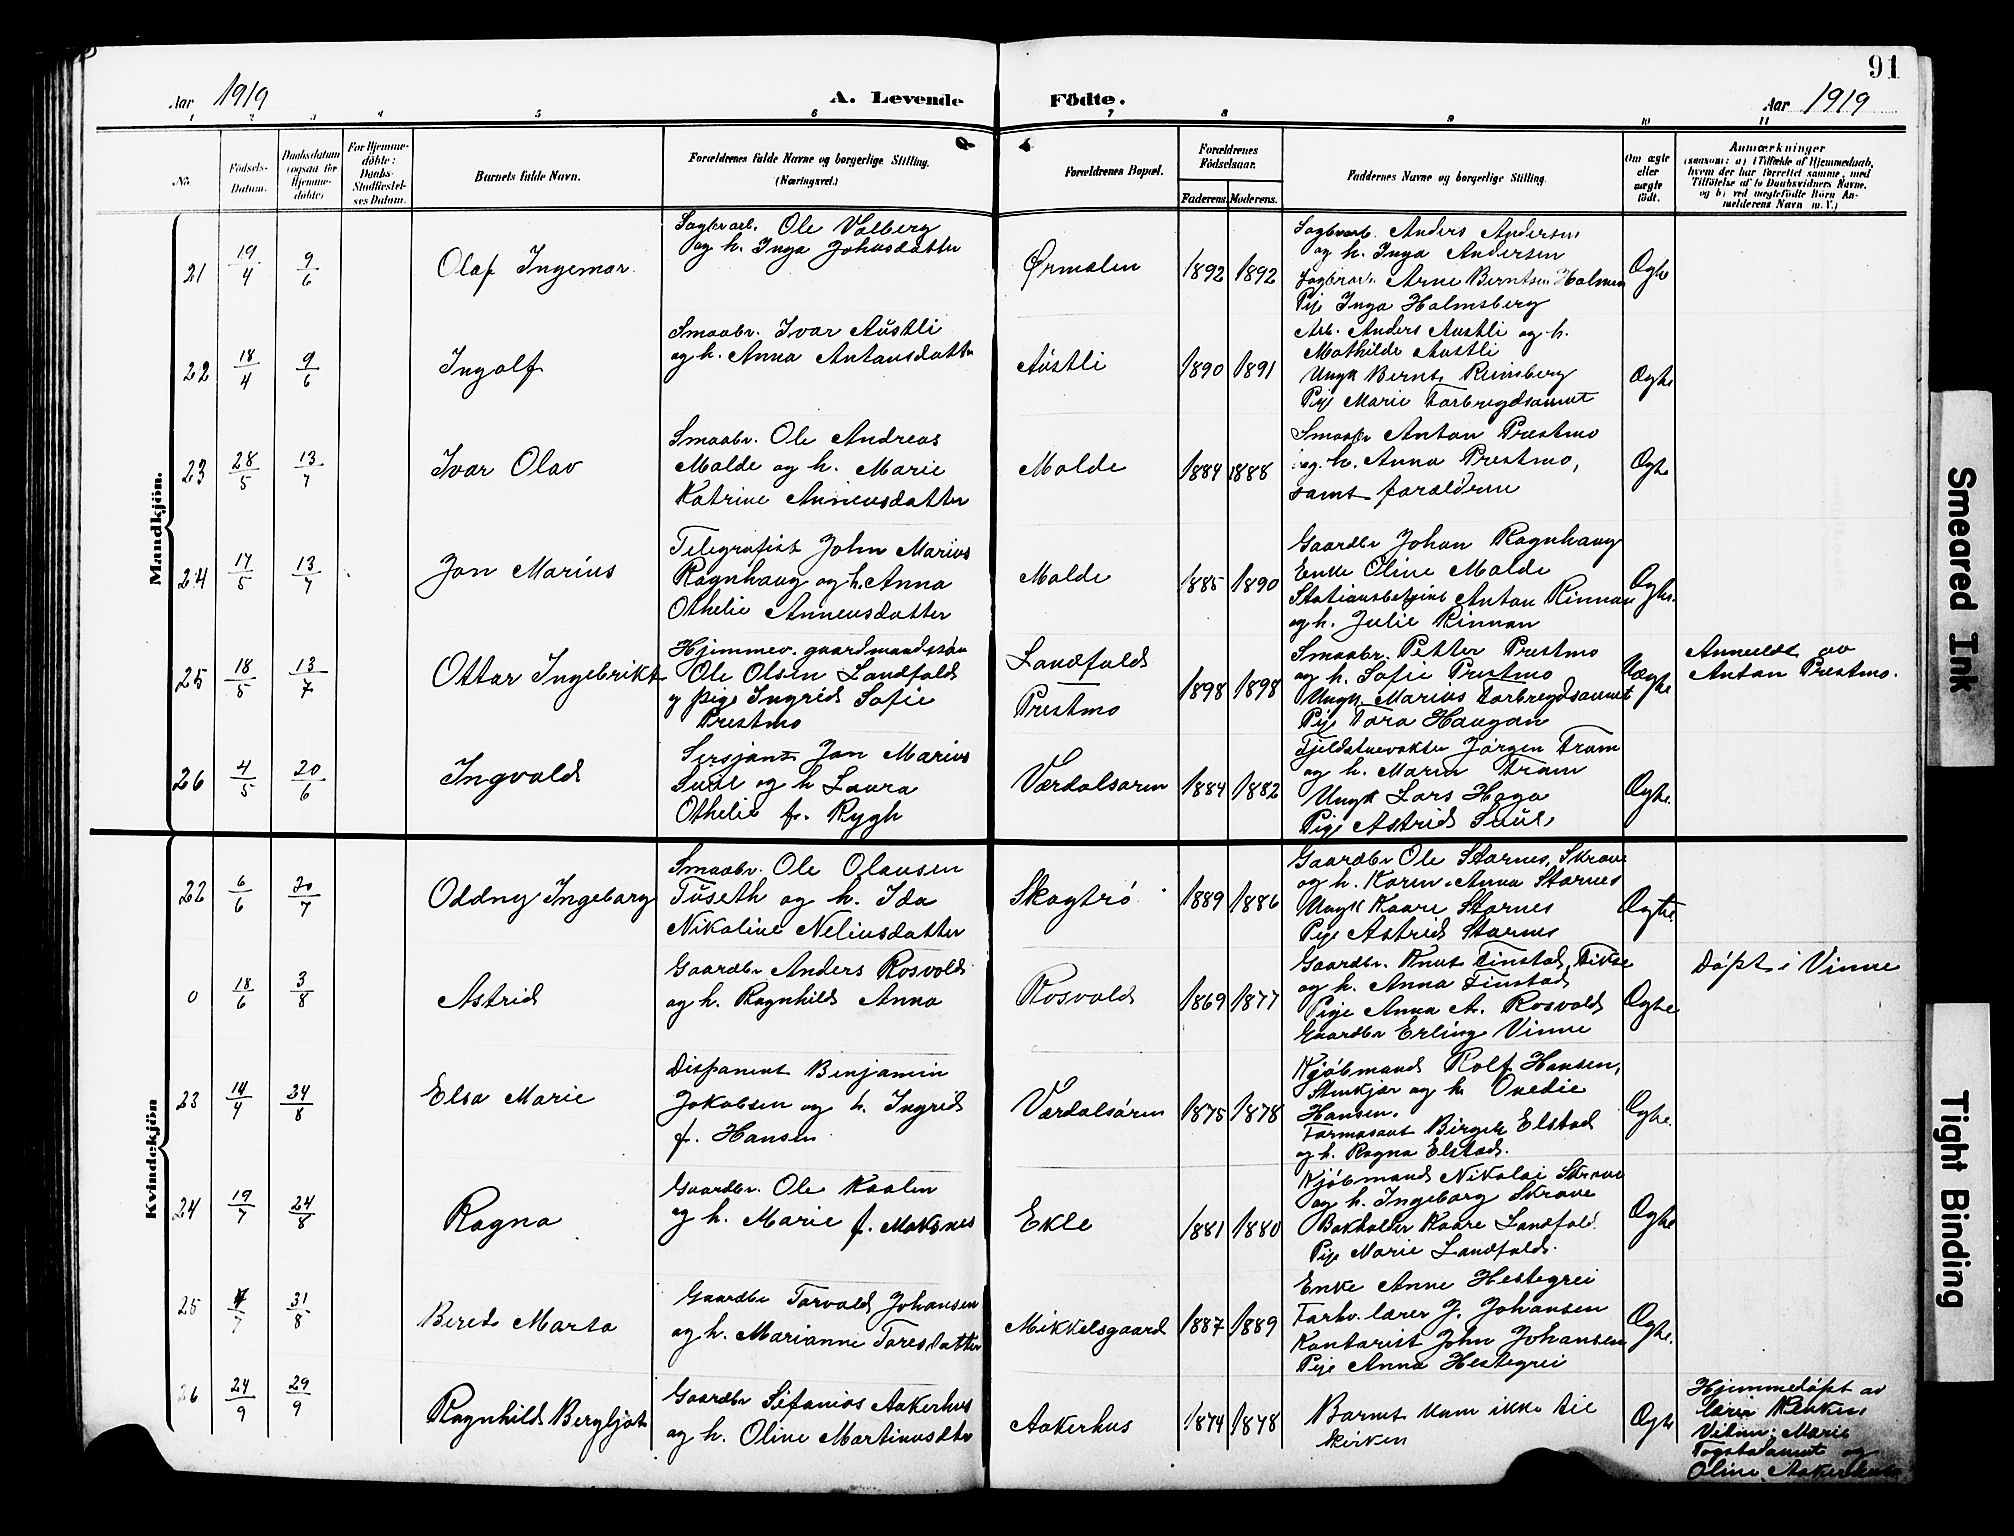 91
Aar 1919
A. Levende Födte.
Aar 1919
1 2 3 4 5 6 7 8 9 10 11
No.
Födsels-Datum.
Daabsdatum (ogsaa for Hjemme-döbte)
For Hjemme-döbte: Daabs-Stadfæstel-ses Datum.
Barnets fulde Navn.
Forældrenes fulde Navne og borgerlige Stilling.
(Næringsvei.)
Forældrenes Bopæl.
Forældrenes Födselsaar.
Faderens. Moderens.
Faddernes Navne og borgerlige Stilling.
Om ægte eller uægte födt.
Anmærkninger
(saasom: a) i Tilfælde af Hjemmedaab, hvem der har forrettet samme, med Tilföielse af to Daabsvidners Navne, og b) ved uegtefödte Börn An-melderens Navn m. V.)
Mandkjön.
21 19/4 9/6 Olaf Ingemar
Sagbrarb. Ole Valberg
og h. Inga Johnsdatter
Ørmelen 1892 1892
Sagbrarb. Anders Andersen
og h. Inga Andersen
Sagbrarb. Arne Berntsen Holmen
Pije Inga Holmsberg
Ægte
22 18/4 9/6 Ingolf
Smaabr. Ivar Austli
og h. Anna Antonsdatter
Austli 1890 1891
Arb. Anders Austli og h.
Mathilde Austli
Ungk Bernt Reinsberg
Pije Marie Forbregdsaunet
Ægte
23 28/5 13/7 Ivar Olav
Smaabr. Ole Andreas
Molde og h. Marie
Katrine Anneusdatter
Molde 1884 1888
Smaabr Anton Prestmo
og h. Anna Prestmo,
samt forældrene
Ægte
24 17/5 13/7 Jon Marius
Telegrafist John Marius
Ragnhaug og h. Anna
Othelie Anneusdatter
Molde 1885 1890
Gaardbr Johan Ragnhaug
Enke Oline Molde
Stationsbetjent Anton Rinnan
og h. Julie Rinnan
Ægte.
25 18/5 13/7 Ottar Ingebrikt
Hjemmev. gaardmandssøn
Ole Olsen Landfald
og pige Ingrid Sofie
Prestmo
Landfald
Prestmo
1898 1898
Smaabr. Petter Prestmo
og h. Sofie Prestmo
Ungk Marius Forbregdsaunet
Pije Tora Haugan
Uægte
Anmeldt av
Anton Prestmo.
26 4/5 20/6 Ingvald
Sersjant Jon Marius
Suul og h Laura
Othelie f. Rygh
Værdalsøren 1884 1882
Fjeldstuevokter Jørgen Tram
og h. Maren Tram
Ungk Lars Haga
Pige Astrid Suul
Ægte.
Kvindekjön
22 6/6 20/7 Oddny Ingeborg
Smaabr. Ole Olausen
Tuseth og h. Ida
Nikoline Neliusdatter
Skogtrø 1889 1886
Gaardbr Ole Stornes, Skrove
og h. Karen-Anna Stornes
Ungk Kaare Stornes
Pije Astrid Stornes
Ægte.
0 18/6 3/8 Astrid
Gaardbr Anders Rosvold
og h. Ragnhild Anna
Rosvold 1869 1877
Gaardbr. Knut Finstad, Fikse
og h. Anna Finstad
Pije Anna A. Rosvold
Gaardbr Erling Vinne
Ægte
Døpt i Vinne
23 14/4 24/8 Elsa Marie
Disponent Benjamin
Jakobsen og h. Ingrid
f. Hansen
Værdalsøren 1875 1878
Kjøbmand Rolf Hansen,
Stenkjær og h. Ovedie
Hansen.
Farmasøut Birger Elstad
og h. Ragna Elstad.
Ægte.
24 19/7 24/8 Ragna
Gaardbr. Ole Kaalen
og h. Marie f. Moksnes
Ekle 1881 1880
Kjøbmand Nikolai Skrove
og h. Ingeborg Skrove
Bokholder Kaare Landfald
Pije Marie Landfald.
Ægte
25 4/7 31/8 Beret Marta
Gaardbr Torvald Johansen
og h. Marianne Toresdatter
Mikkelsgaard 1887 1889
Enke Anne Hestegrei
Forhv. lærer J. Johansen
Kontorist John Johansen
Pije Anna Hestegrei
Ægte.
26 24/9 29/9 Ragnhild Bergljot
Gaardbr Sefanias Aakerhus
og h. Oline Martinusdtr
Aakerhus 1874 1878
Barnet kom ikke til
kirken
Ægte
Hjemmedøpt av
lærer
Vitner: Marie
og
Oline Aakerhus
Smeared Ink
Tight Binding